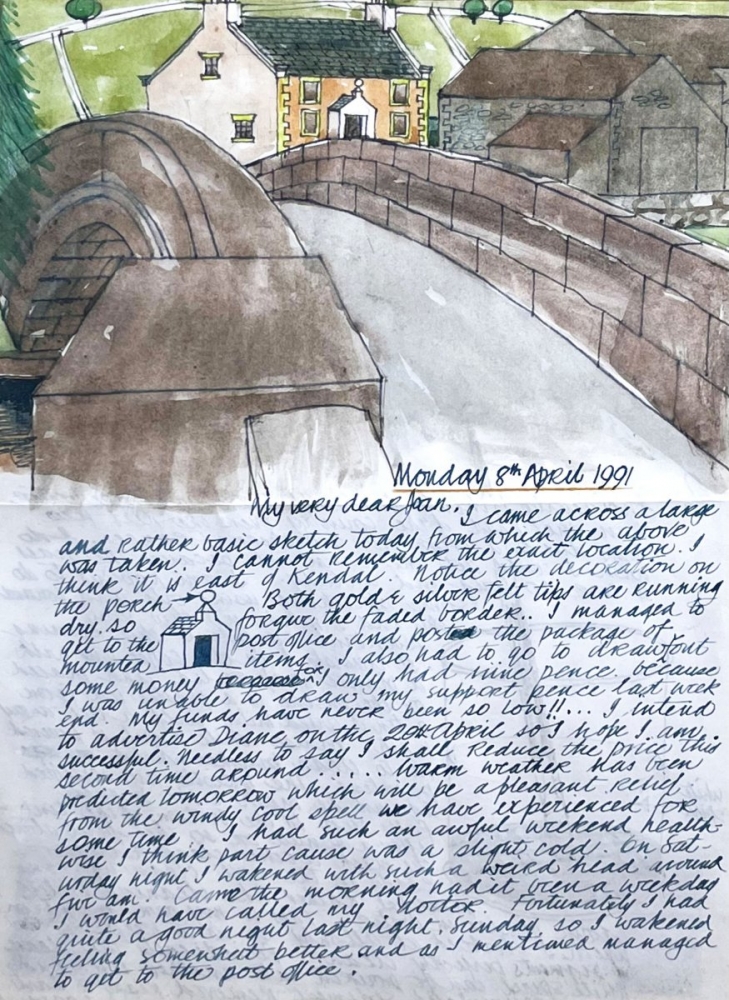 Monday 8th April 1991
My very dear Joan. I came across a large
and rather basic sketch today from which the above
was taken. I cannot remember the exact location. I
think it is east of Kendal. Notice the decoration on
the porch Both gold & silver felt tips are running
dry. so forgive the faded border.. I managed to
get to the post office and posted the package of
mounted items. I also had to go to draw out
some money for I only had nine pence. because
I was unable to draw my support pence last week
end. My funds have never been so low!!... I intend
to advertise Diane on the 20th April so I hope I am
successful. Needless to say I shall reduce the price this
second time around ..... Warm weather has been
predicted tomorrow which will be a pleasant relief
from the windy cool spell we have experienced for
some time. I had such an awful weekend health-
wise I think part cause was a slight cold. On Sat-
urday night I wakened with such a weird head around
five am. Came the morning had it been a weekday
I would have called my doctor. Fortunately I had
quite a good night last night. Sunday. so I wakened
feeling somewhat better and as I mentioned managed
to get to the post office.